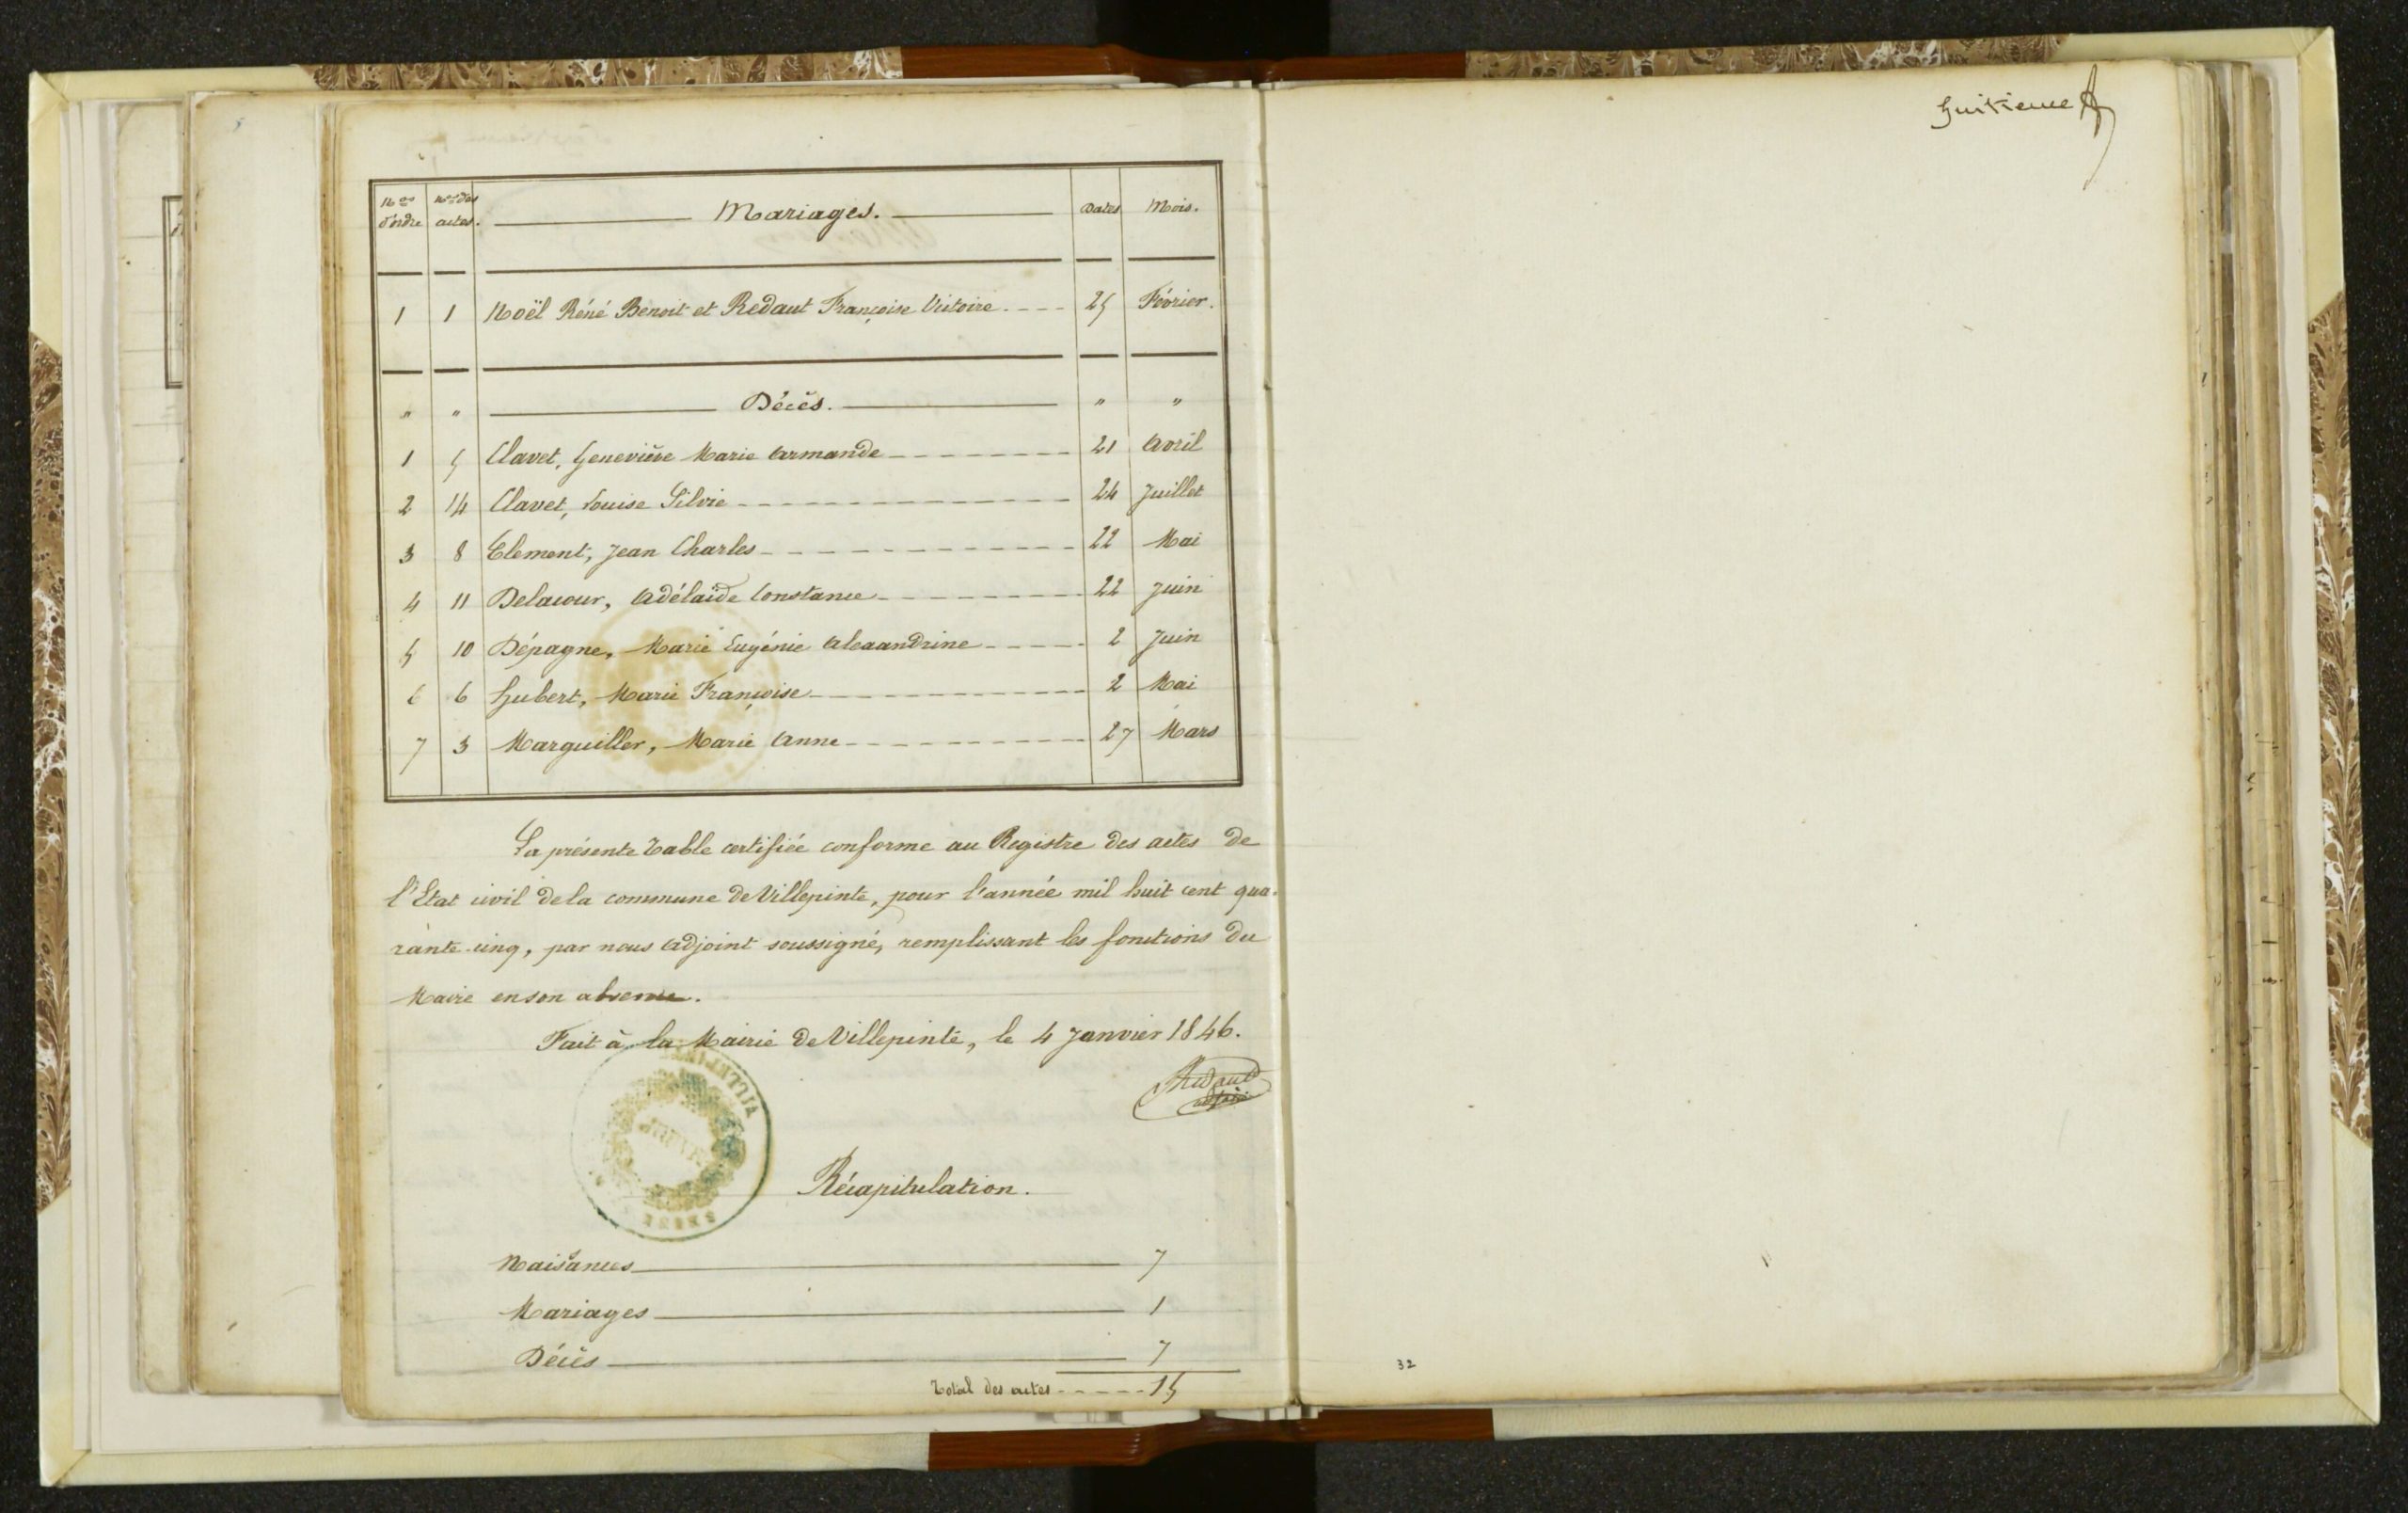 Nos d'ordre Nos des actes. Mariages. Dates Mois.
1 1 Noël Réné Benoit et Redaut Françoise Victoire. 25 Février.
" " Décès. " "
1 5 Clavet, Geneviève Marie Armande 21 Avril
2 14 Clavet, Louise Silvie 24 Juillet
3 8 Clement, Jean Charles 22 Mai
4 11 Delacour, Adélaïde Constance 22 Juin
5 10 Dépagne, Marie Eugénie Alexandrine 2 Juin
6 6 Hubert, Marie Françoise 2 Mai
7 3 Marguiller, Marie Anne 27 Mars
La présente Table certifiée conforme au Registre des actes de
l'Etat civil de la commune de Villepinte, pour l'année mil huit cent qua-
rante-cinq, par nous Adjoint soussigné, remplissant les fonctions du
Maire en son absence.
Fait à la Mairie de Villepinte, le 4 Janvier 1846.
Récapitulation.
Naissances 7
Mariages 1
Décès 7
Total des actes 15
huitieme
32